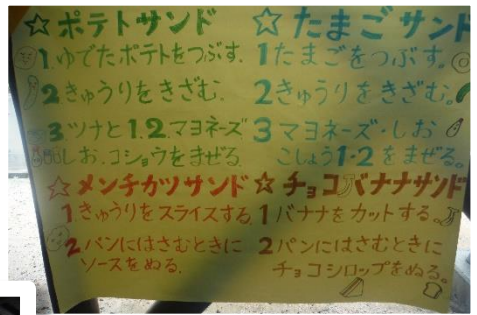 ☆ポテトサンド
1.ゆでたポテトをつぶす.
2きゅうりをきざむ.
3ツナと1.2.マヨネーズ
しお.コショウをまぜる.
☆たまごサンド
1たまごをつぶす。
2きゅうりをきざむ。
3マヨネーズ・しお
こしょう1・2をまぜる。
☆メンチカツサンド
1きゅうりをスライスする.
2パンにはさむときに
ソースをぬる.
☆チョコバナナサンド
1バナナをカットする。
2パンにはさむときに
チョコシロップをぬる。